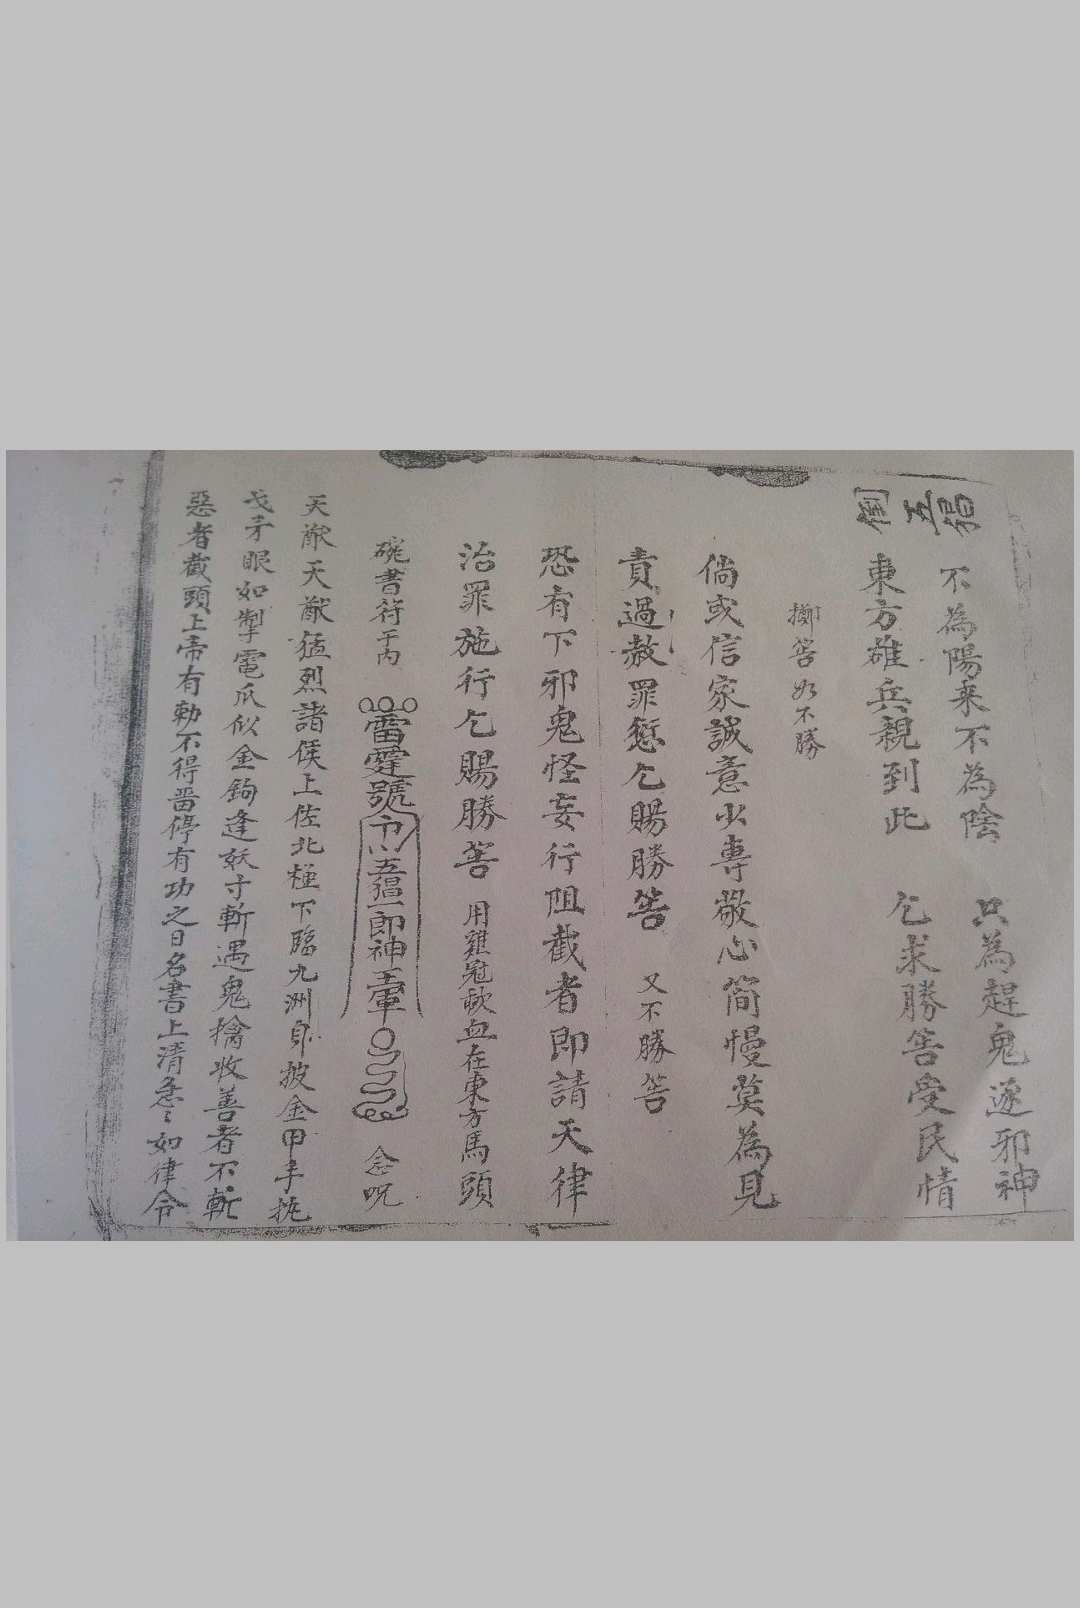 倒五猖
不為陽来不為陰 只為趕鬼逐邪神
東方雄兵親到此 乞求勝筶受民情
擲筶如不勝
倘或信家誠意少專敬心簡慢莫為見
責過赦罪愆乞賜勝筶 又不勝筶
恐有下邪鬼怪妄行阻截者即請天律
治罪施行乞賜勝筶 用雞冠歃血在東方馬頭
碗書符于内 雷霆號令 五猖一郎神 念呪
天猷天猷猛烈諸侯上佐北極下臨九洲身披金甲手执
戈矛眼如掣電爪似金鉤逢妖寸斬遇鬼擒收善者不斬
惡者截頭上帝有勅不得畱停有功之日名書上清急〻如律令